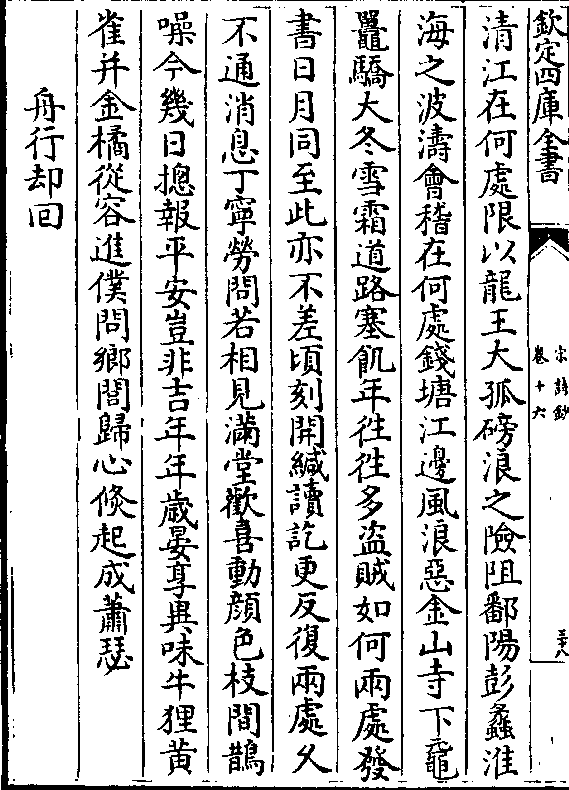 欽定四庫全書
宋詩鈔
卷十六
清江在何處限以龍王大孤磅浪之險阻鄱陽彭蠡淮
海之波濤會稽在何處錢塘江邊風浪惡金山寺下黿
鼉驕大冬雪霜道路塞飢年徃徃多盜賊如何兩處發
書日月同至此亦不差頃刻開緘讀訖更反復兩處久
不通消息丁寧勞問若相見滿堂歡喜動顔色枝間鵲
噪今幾日摠報平安豈非吉年年歲晏享異味牛狸黄
雀并金橘從容進僕問鄉閭歸心倐起成蕭瑟
舟行却回